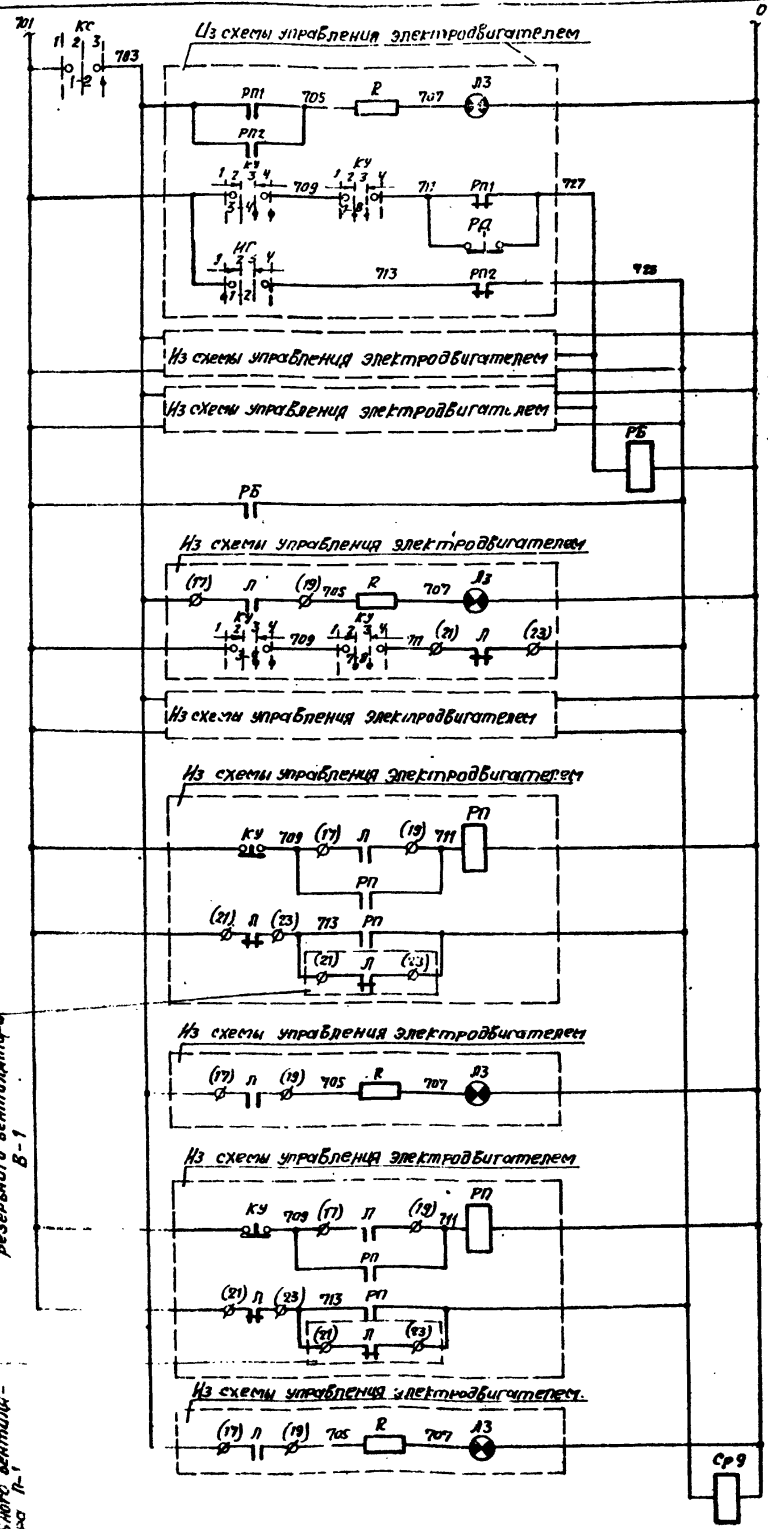 701 КС 0
1 2 3 703
1-2
Из схемы управления электродвигателем
РП1 705 R 707 ЛЗ
РП2
КУ КУ
1 2 3 4 709 1 2 3 4 711 РП1 727
3 4 7 8
РД
ИГ
1 2 3 4 713 РП2 725
1 2
Из схемы управления электродвигателем
Из схемы управления электродвигателем
РБ
РБ
Из схемы управления электродвигателем
(17) Л (19) 705 R 707 ЛЗ
КУ КУ
1 2 3 4 709 1 2 3 4 711 (21) Л (23)
7 8
Из схемы управления электродвигателем
Из схемы управления электродвигателем
КУ 709 (17) Л (19) 711 РП
РП
(21) Л (23) 713 РП
(21) Л (23)
Из схемы управления электродвигателем
(17) Л (19) 705 R 707 ЛЗ
резервного вентилятора
В-1
Из схемы управления электродвигателем
КУ 709 (17) Л (19) 711 РП
РП
(21) Л (23) 713 РП
(21) Л (23)
Из схемы управления электродвигателем.
(17) Л (19) 705 R 707 ЛЗ
П-1
Ср9